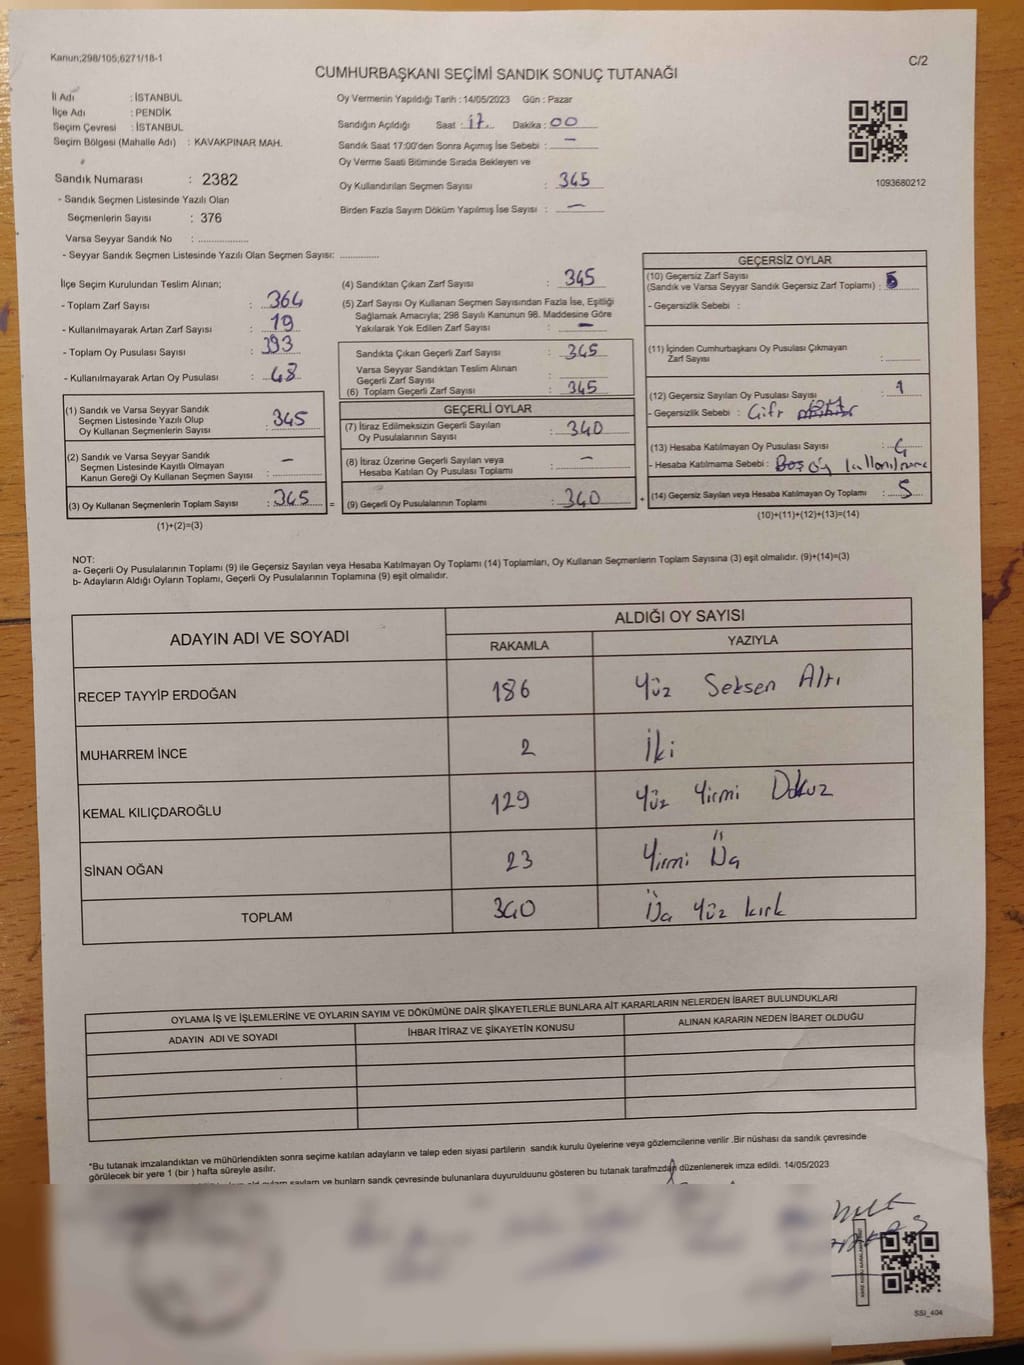 Kanun;298/105;6271/18-1
C/2
CUMHURBAŞKANI SEÇİMİ SANDIK SONUÇ TUTANAĞI
İl Adı : İSTANBUL
İlçe Adı : PENDİK
Seçim Çevresi : İSTANBUL
Seçim Bölgesi (Mahalle Adı) : KAVAKPINAR MAH.
Sandık Numarası : 2382
- Sandık Seçmen Listesinde Yazılı Olan
Seçmenlerin Sayısı : 376
Varsa Seyyar Sandık No : ................
- Seyyar Sandık Seçmen Listesinde Yazılı Olan Seçmen Sayısı: ............
Oy Vermenin Yapıldığı Tarih : 14/05/2023 Gün : Pazar
Sandığın Açıldığı Saat : 17 Dakika : 00
Sandık Saat 17:00'den Sonra Açımış İse Sebebi : —
Oy Verme Saati Bitiminde Sırada Bekleyen ve
Oy Kullandırılan Seçmen Sayısı : 345
Birden Fazla Sayım Döküm Yapılmış İse Sayısı : —
1093680212
İlçe Seçim Kurulundan Teslim Alınan;
- Toplam Zarf Sayısı : 364
- Kullanılmayarak Artan Zarf Sayısı : 19
- Toplam Oy Pusulası Sayısı : 393
- Kullanılmayarak Artan Oy Pusulası : 48
(1) Sandık ve Varsa Seyyar Sandık
Seçmen Listesinde Yazılı Olup
Oy Kullanan Seçmenlerin Sayısı : 345
(2) Sandık ve Varsa Seyyar Sandık
Seçmen Listesinde Kayıtlı Olmayan
Kanun Gereği Oy Kullanan Seçmen Sayısı : —
(3) Oy Kullanan Seçmenlerin Toplam Sayısı : 345 =
(1)+(2)=(3)
(4) Sandıktan Çıkan Zarf Sayısı : 345
(5) Zarf Sayısı Oy Kullanan Seçmen Sayısından Fazla İse, Eşitliği
Sağlamak Amacıyla; 298 Sayılı Kanunun 98. Maddesine Göre
Yakılarak Yok Edilen Zarf Sayısı : —
Sandıkta Çıkan Geçerli Zarf Sayısı : 345
Varsa Seyyar Sandıktan Teslim Alınan
Geçerli Zarf Sayısı :
(6) Toplam Geçerli Zarf Sayısı : 345
GEÇERLİ OYLAR
(7) İtiraz Edilmeksizin Geçerli Sayılan
Oy Pusulalarının Sayısı : 340
(8) İtiraz Üzerine Geçerli Sayılan veya
Hesaba Katılan Oy Pusulası Toplamı : —
(9) Geçerli Oy Pusulalarının Toplamı : 340 +
GEÇERSİZ OYLAR
(10) Geçersiz Zarf Sayısı
(Sandık ve Varsa Seyyar Sandık Geçersiz Zarf Toplamı) :
- Geçersizlik Sebebi :
(11) İçinden Cumhurbaşkanı Oy Pusulası Çıkmayan
Zarf Sayısı :
(12) Geçersiz Sayılan Oy Pusulası Sayısı : 1
- Geçersizlik Sebebi : Çift
(13) Hesaba Katılmayan Oy Pusulası Sayısı : 4
- Hesaba Katılmama Sebebi : Boş oy
(14) Geçersiz Sayılan veya Hesaba Katılmayan Oy Toplamı : 5
(10)+(11)+(12)+(13)=(14)
NOT:
a- Geçerli Oy Pusulalarının Toplamı (9) ile Geçersiz Sayılan veya Hesaba Katılmayan Oy Toplamı (14) Toplamları, Oy Kullanan Seçmenlerin Toplam Sayısına (3) eşit olmalıdır. (9)+(14)=(3)
b- Adayların Aldığı Oyların Toplamı, Geçerli Oy Pusulalarının Toplamına (9) eşit olmalıdır.
ADAYIN ADI VE SOYADI
ALDIĞI OY SAYISI
RAKAMLA YAZIYLA
RECEP TAYYİP ERDOĞAN 186 Yüz Seksen Altı
MUHARREM İNCE 2 İki
KEMAL KILIÇDAROĞLU 129 Yüz Yirmi Dokuz
SİNAN OĞAN 23 Yirmi Üç
TOPLAM 340 Üç Yüz kırk
OYLAMA İŞ VE İŞLEMLERİNE VE OYLARIN SAYIM VE DÖKÜMÜNE DAİR ŞİKAYETLERLE BUNLARA AİT KARARLARIN NELERDEN İBARET BULUNDUKLARI
ADAYIN ADI VE SOYADI İHBAR İTİRAZ VE ŞİKAYETİN KONUSU ALINAN KARARIN NEDEN İBARET OLDUĞU
*Bu tutanak imzalandıktan ve mühürlendikten sonra seçime katılan adayların ve talep eden siyasi partilerin sandık kurulu üyelerine veya gözlemcilerine verilir .Bir nüshası da sandık çevresinde
görülecek bir yere 1 (bir ) hafta süreyle asılır.
sayım ve bunların sandk çevresinde bulunanlara duyurulduunu gösteren bu tutanak tarafmzdan düzenlenerek imza edildi. 14/05/2023
SSI_404